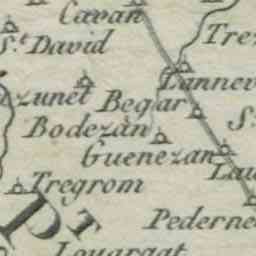 Cavan
S.t David
Tre
Lannev
zunet
Begar
Bodezan
S.
Guenezan
Lau
Tregrom
Pr
Pederne
Louargat